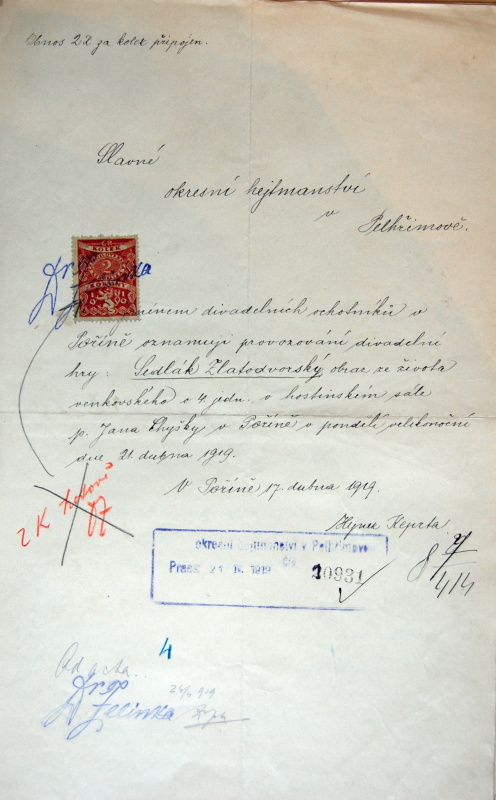 Obnos 2 K za kolek připojen.
Slavné
okresní hejtmanství
v
Pelhřimově.
KOLEK
2
KORUNY
Jménem divadelních ochotníků v
Pořině oznamuji provozování divadelní
hry: Sedlák Zlatodvorský, obraz ze života
venkovského o 4 jedn. v hostinském sále
p. Jana Chyšky v Pořině v pondělí velikonoční
dne 21. dubna 1919.
V Pořině 17. dubna 1919.
Hynek Keprta
2 K
okresní hejtmanství v Pelhřimově
Praes. 21 IV. 1919 10931
8
414
4
Ad acta.
24/4 919
Jelinka